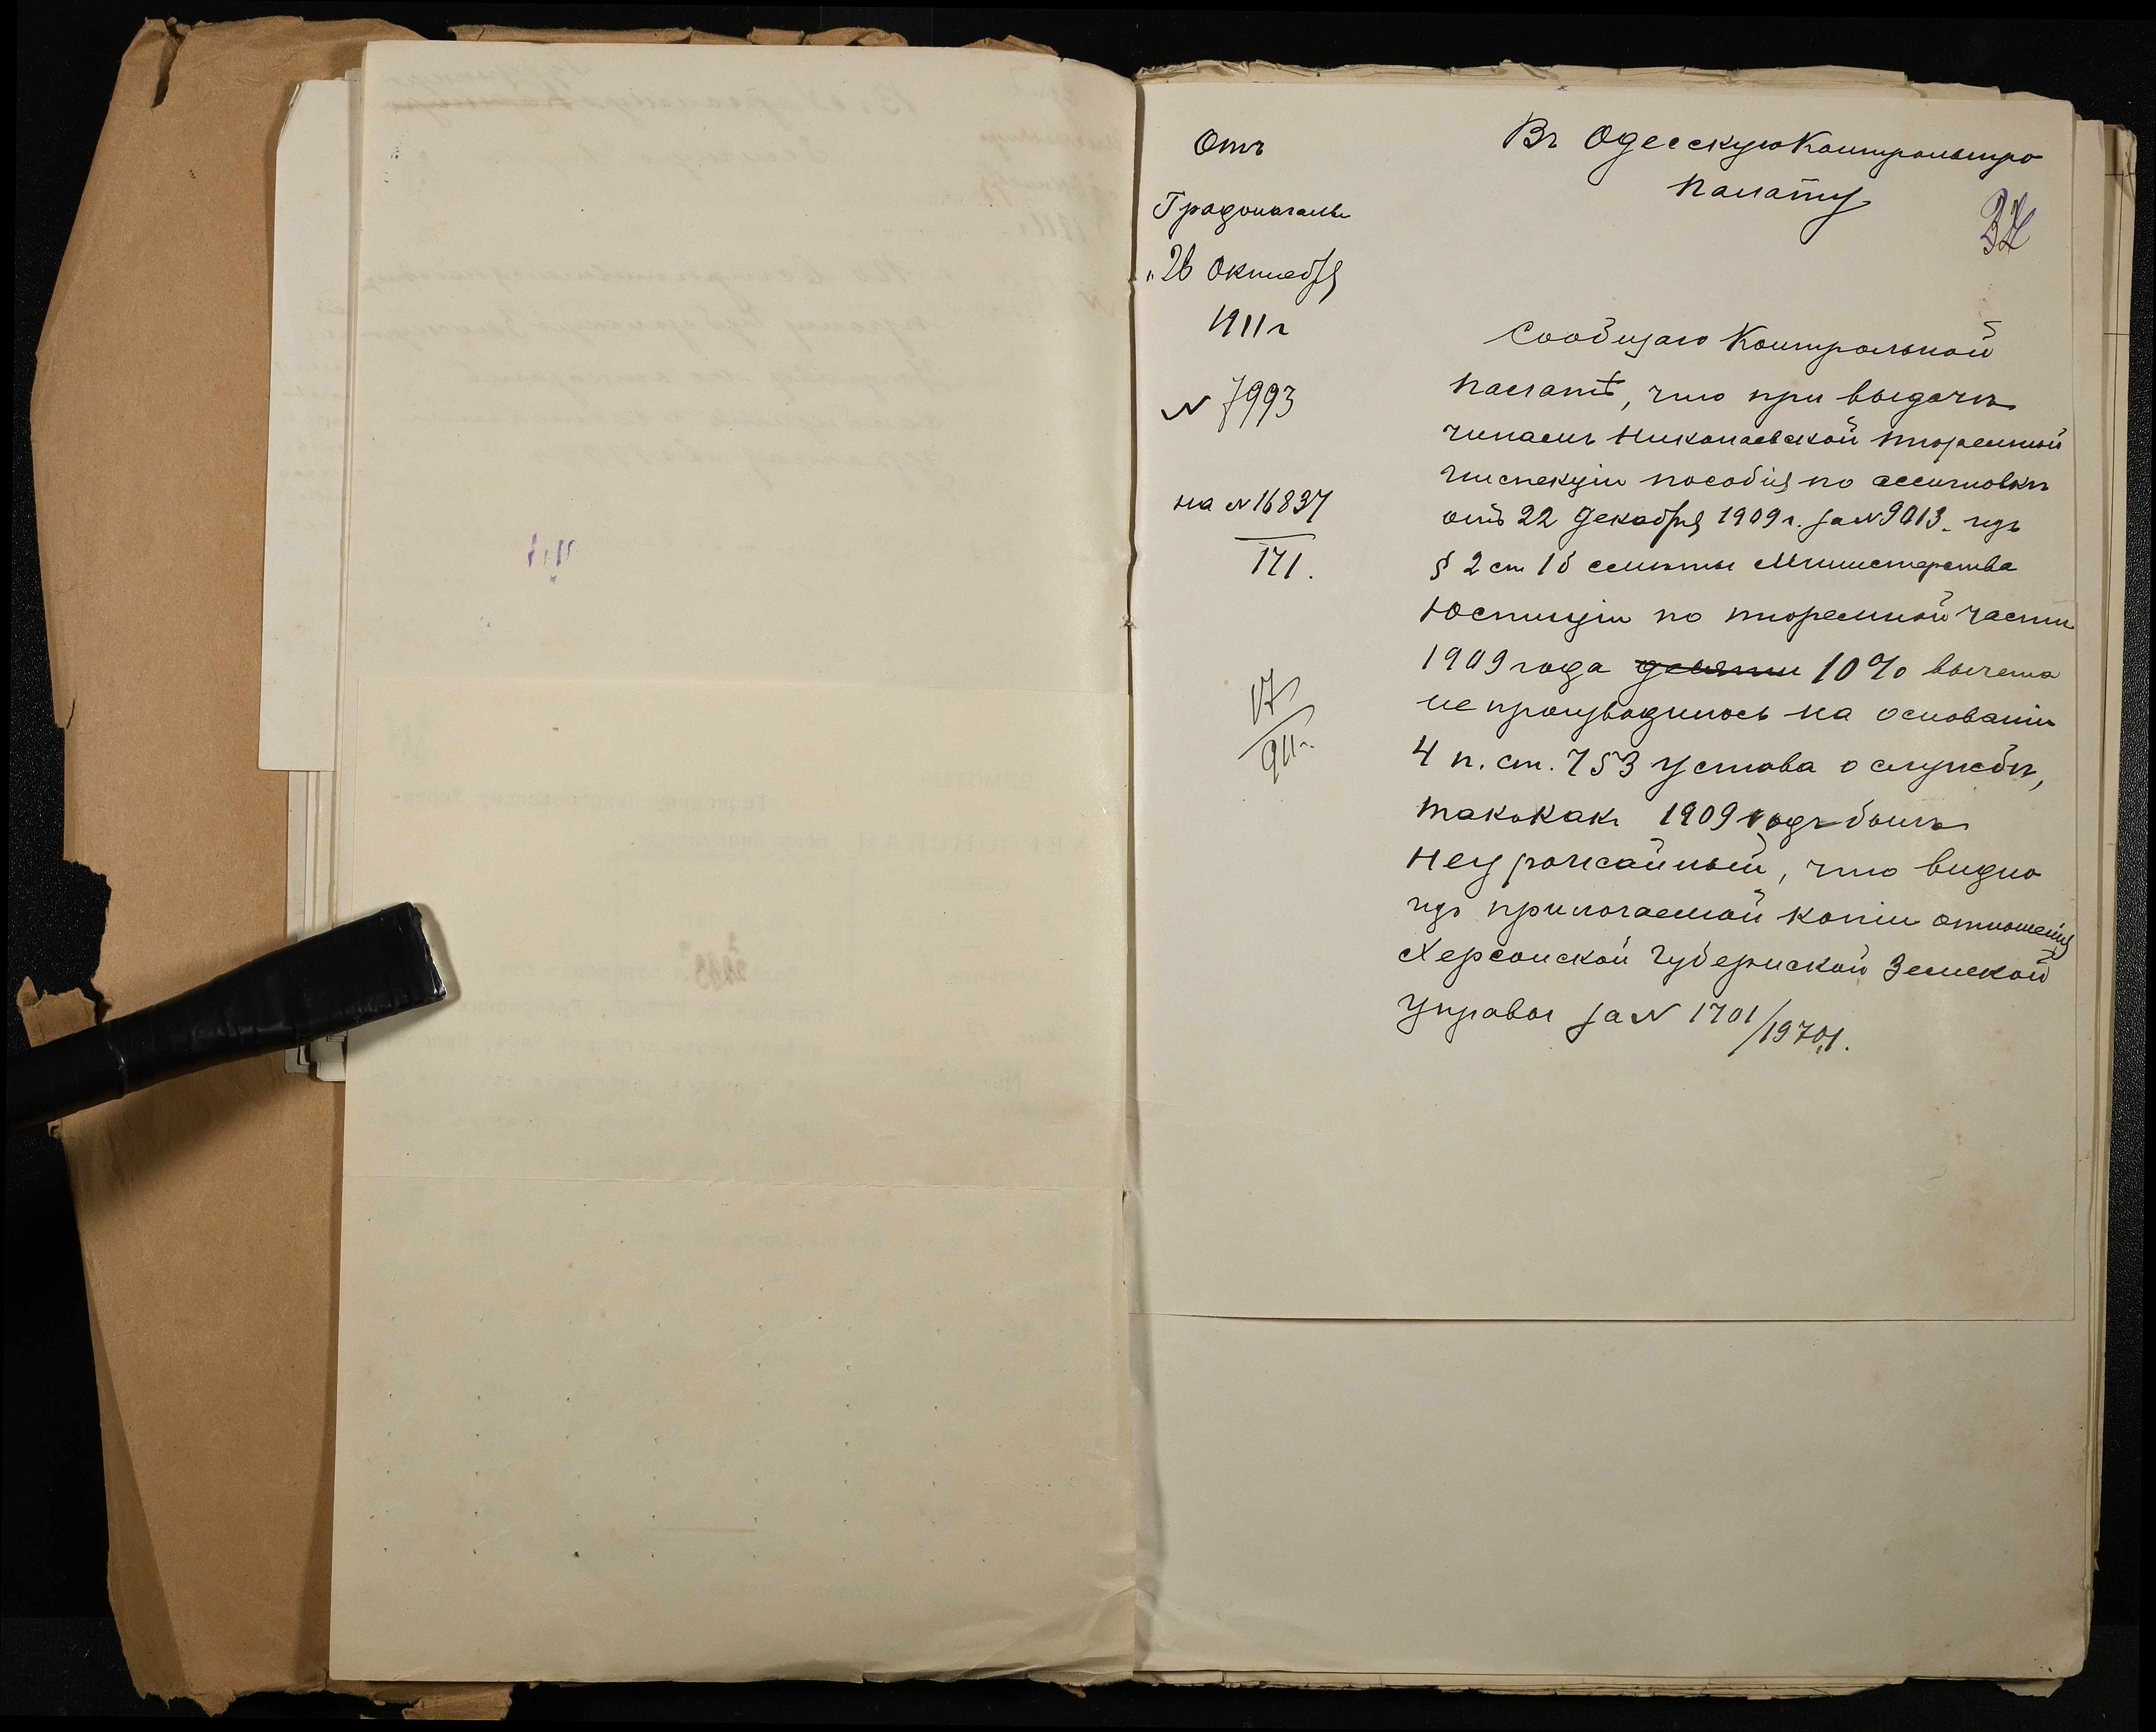 Отъ
Градоначальн
"26 Октября
1911 г
№ 7993
на № 16837
171.
17
911 г.
Въ Одесскую Контрольную
Палату
32
Сообщаю Контрольной
Палатѣ, что при выдачѣ
чинамъ Николаевской тюремной
Инспекціи пособія по ассигновкѣ
отъ 22 Декабря 1909 г. за № 9013 изъ
§ 2 ст 1 б смѣты Министерства
Юстиціи по тюремной части
1909 года 10% вычета
не производилось на основаніи
4 п. ст. 753 устава о службѣ,
такъ какъ 1909 годъ былъ
неурожайный, что видно
изъ прилагаемой копіи отношенія
Херсонской Губернской Земской
Управы за № 1701/19701.